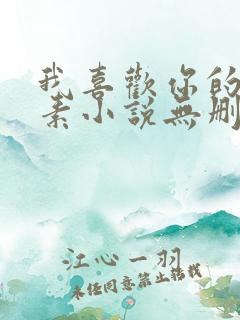 我喜歡你的
素小說無刪
江心一羽
未经同意禁止转载